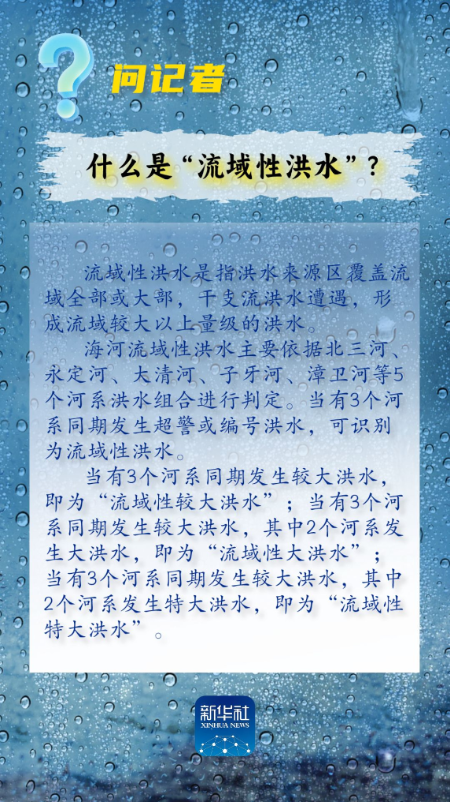 问记者
什么是“流域性洪水”?
流域性洪水是指洪水来源区覆盖流
域全部或大部，干支流洪水遭遇，形
成流域较大以上量级的洪水。
海河流域性洪水主要依据北三河、
永定河、大清河、子牙河、漳卫河等5
个河系洪水组合进行判定。当有3个河
系同期发生超警或编号洪水，可识别
为流域性洪水。
当有3个河系同期发生较大洪水，
即为“流域性较大洪水”；当有3个河
系同期发生较大洪水，其中2个河系发
生大洪水，即为“流域性大洪水”；
当有3个河系同期发生较大洪水，其中
2个河系发生特大洪水，即为“流域性
特大洪水”。
新华社
XINHUA NEWS